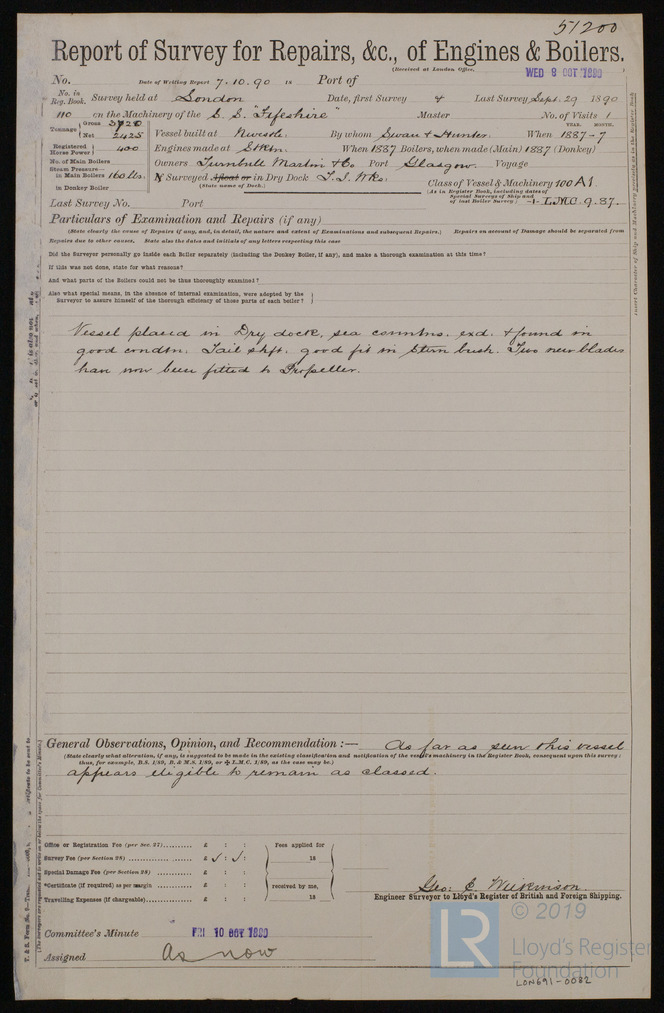 51200
Report of Survey for Repairs, &c., of Engines & Boilers.
(Received at London Office,
WED 8 OCT 1890
No. Date of Writing Report 7.10.90 18 Port of
No. in Reg. Book. Survey held at London Date, first Survey & Last Survey Sept. 29 1890
110 on the Machinery of the S. S. "Fifeshire" Master No. of Visits 1
Tonnage Gross 3720 Net 2425 Vessel built at Newcstle. By whom Swan & Hunter. When 1887-7
YEAR. MONTH.
Registered Horse Power 400 Engines made at Stktn. When 1887 Boilers, when made (Main) 1887 (Donkey)
No. of Main Boilers Owners Turnbull Martin & Co Port Glasgow. Voyage
Steam Pressure— in Main Boilers 160 lbs. If Surveyed Afloat or in Dry Dock T. I. Wks. Class of Vessel & Machinery 100 A1
in Donkey Boiler (State name of Dock.) (As in Register Book, including dates of Special Surveys of Ship and of last Boiler Survey) L.M.C. 9.87.
Last Survey No. Port
Particulars of Examination and Repairs (if any)
(State clearly the cause of Repairs if any, and, in detail, the nature and extent of Examinations and subsequent Repairs.) Repairs on account of Damage should be separated from
Repairs due to other causes. State also the dates and initials of any letters respecting this case
Did the Surveyor personally go inside each Boiler separately (including the Donkey Boiler, if any), and make a thorough examination at this time?
If this was not done, state for what reasons?
And what parts of the Boilers could not be thus thoroughly examined?
Also what special means, in the absence of internal examination, were adopted by the
Surveyor to assure himself of the thorough efficiency of those parts of each boiler?
Vessel placed in Dry dock, sea conntns. exd. & found in
good condtn. Tail shft. good fit in Stern bush. Two new blades
hav now been fitted to Propeller.
General Observations, Opinion, and Recommendation :— As far as seen this vessel
(State clearly what alteration, if any, is suggested to be made in the existing classification and notification of the vessel's machinery in the Register Book, consequent upon this survey:
thus, for example, B.S. 1/89, B. & M.S. 1/89, or L.M.C. 1/89, as the case may be.)
appears eligible to remain as classed.
Office or Registration Fee (per Sec. 27) £ : : Fees applied for
Survey Fee (per Section 28) £ : : 18
Special Damage Fee (per Section 28) £ : :
*Certificate (if required) as per margin £ : : received by me,
Travelling Expenses (if chargeable) £ : : 18
Geo: C. Wilkinson.
Engineer Surveyor to Lloyd's Register of British and Foreign Shipping.
Committee's Minute FRI 10 OCT 1890
Assigned As now
© 2019
LR Lloyd's Register
Foundation
LON691-0082